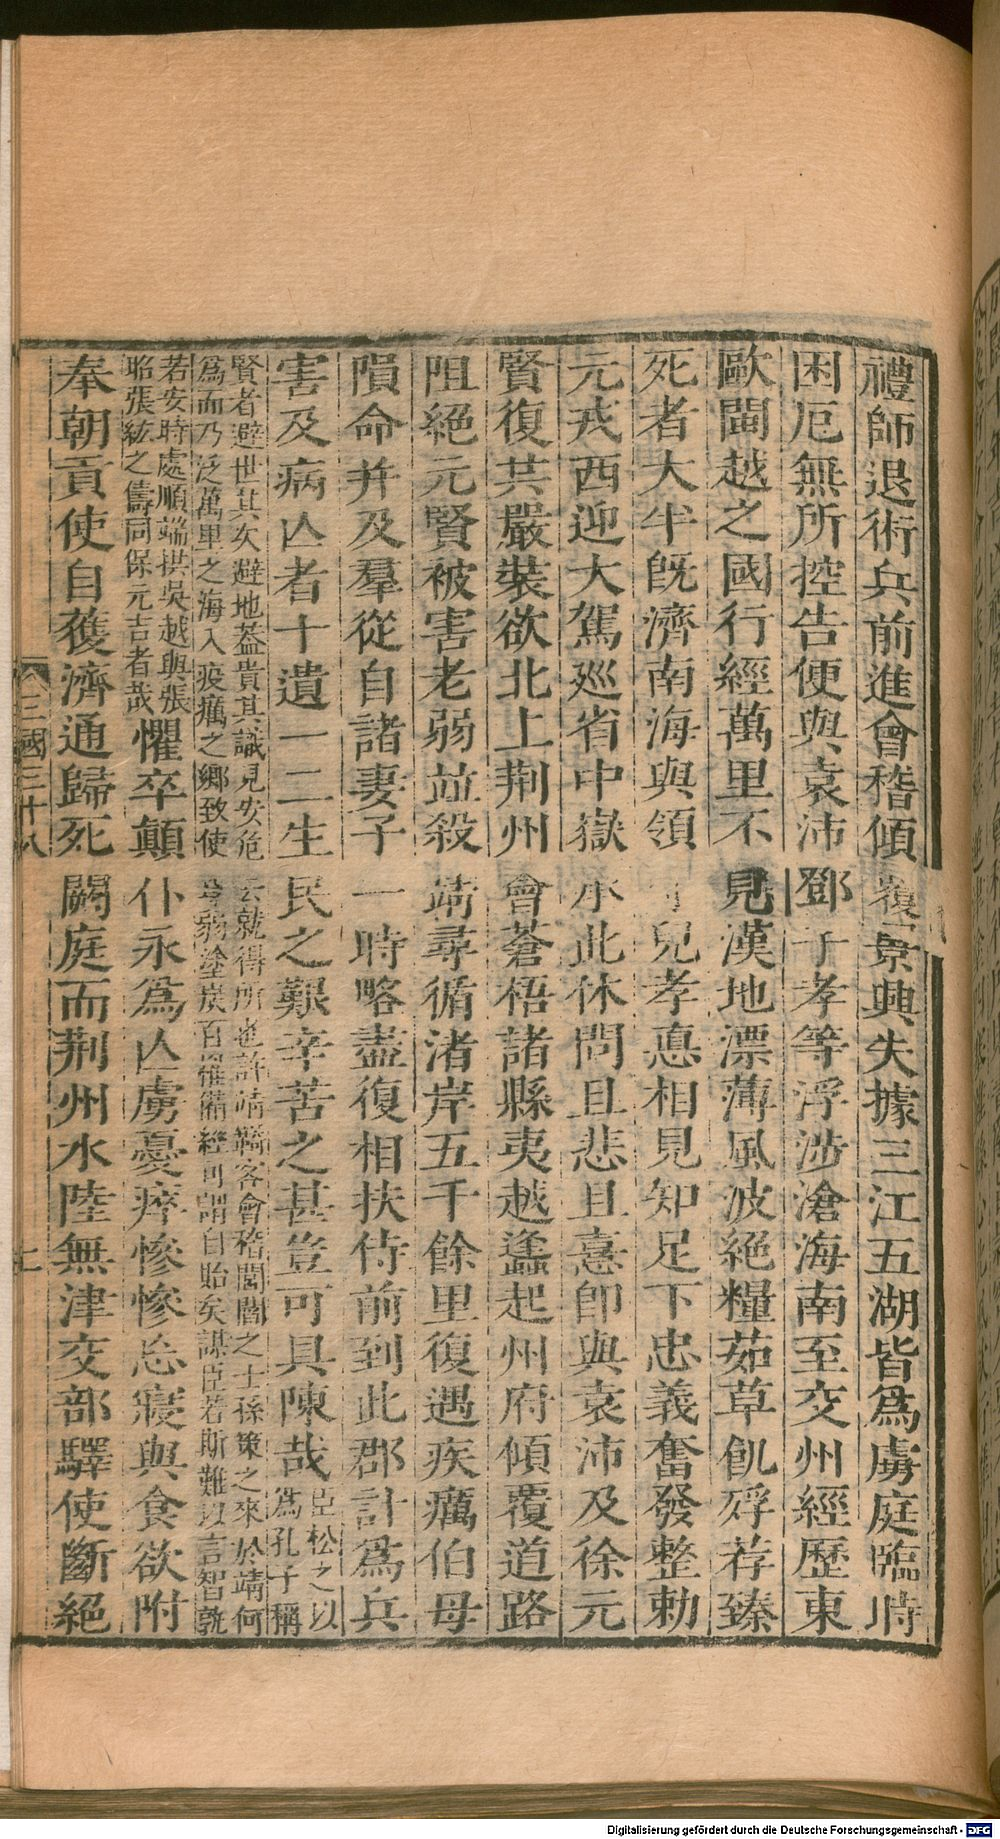 禮師退術兵前進會稽傾覆景興失據三江五湖皆爲虜庭臨時
困厄無所控告便與袁沛鄧子孝等浮涉滄海南至交州經歷東
歐閩越之國行經萬里不見漢地漂薄風波絕糧茹草飢殍荐臻
死者大半旣濟南海與領守兒孝悳相見知足下忠義奮發整勅
元戎西迎大駕巡省中嶽承此休問且悲且憙卽與袁沛及徐元
賢復共嚴裝欲北上荆州會蒼梧諸縣夷越蠭起州府傾覆道路
阻絕元賢被害老弱竝殺靖尋循渚岸五千餘里復遇疾癘伯母
隕命并及羣從自諸妻子一時略盡復相扶侍前到此郡計爲兵
害及病亾者十遺一二生民之艱辛苦之甚豈可具陳哉臣松之以
爲孔子稱
賢者避世其次避地葢貴其識見安危去就得所也許靖羇客會稽閭閻之士孫策之來於靖何
爲而乃泛萬里之海入疫癘之鄉致使尊弱塗炭百罹備經可謂自貽矣謀臣若斯難以言智孰
若安時處順端拱吳越與張
昭張紘之儔同保元吉者哉
懼卒顛仆永爲亾虜憂瘁慘慘忘寢與食欲附
奉朝貢使自獲濟通歸死闕庭而荆州水陸無津交部驛使斷絕
三國三十八
七
Digitalisierung gefördert durch die Deutsche Forschungsgemeinschaft - DFG